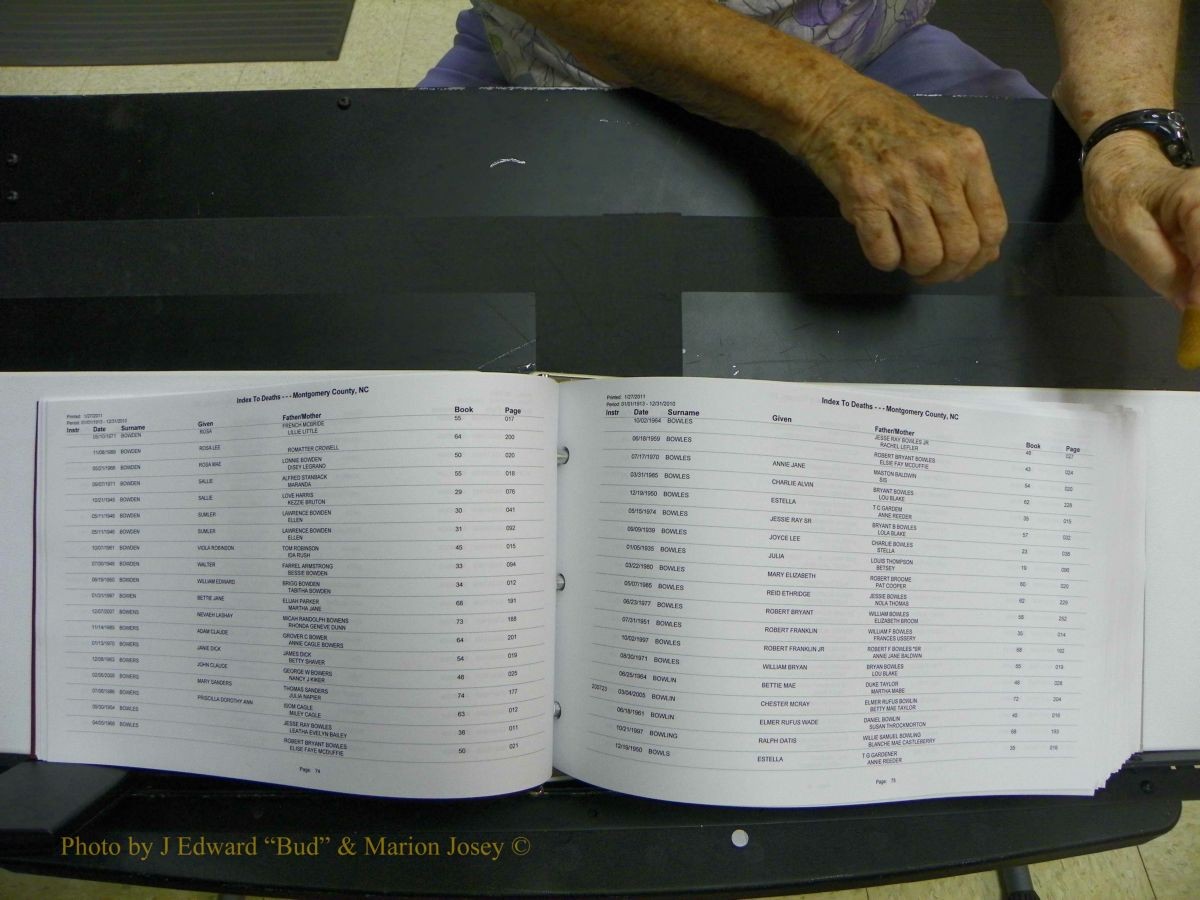 Index To Deaths - - - Montgomery County, NC
Printed: 1/27/2011
Period: 01/01/1913 - 12/31/2010
Instr Date Surname Given Father/Mother Book Page
BOWDEN ROSA FRENCH MCBRIDE 55 017
LILLIE LITTLE
BOWDEN ROSA LEE ROMATTER CROWELL 64 200
BOWDEN ROSA MAE LONNIE BOWDEN 50 020
DISEY LEGRAND
BOWDEN SALLIE ALFRED STANBACK 55 018
MARANDA
BOWDEN SALLIE LOVE HARRIS 29 076
KEZZIE BRUTON
BOWDEN SUMLER LAWRENCE BOWDEN 30 041
ELLEN
BOWDEN SUMLER LAWRENCE BOWDEN 31 092
ELLEN
BOWDEN VIOLA ROBINSON TOM ROBINSON 45 015
IDA RUSH
BOWDEN WALTER FARREL ARMSTRONG 33 094
BESSIE BOWDEN
BOWDEN WILLIAM EDWARD BRIGG BOWDEN 34 012
TABITHA BOWDEN
BOWEN BETTIE JANE ELIJAH PARKER 68 191
MARTHA JANE
BOWENS NEVAEH LASHAY MICAH RANDOLPH BOWENS 73 188
RHONDA GENEVE DUNN
BOWERS ADAM CLAUDE GROVER C BOWER 64 201
ANNIE CAGLE BOWERS
BOWERS JANIE DICK JAMES DICK 54 019
BETTY SHAVER
BOWERS JOHN CLAUDE GEORGE W BOWERS 46 025
NANCY J KIKER
BOWERS MARY SANDERS THOMAS SANDERS 74 177
JULIA NAPIER
BOWERS PRISCILLA DOROTHY ANN ISOM CAGLE 63 012
MILEY CAGLE
BOWLES JESSE RAY BOWLES 36 011
LEATHA EVELYN BAILEY
BOWLES ROBERT BRYANT BOWLES 50 021
ELISE FAYE MCDUFFIE
Page: 74
Index To Deaths - - - Montgomery County, NC
Printed: 1/27/2011
Period: 01/01/1913 - 12/31/2010
Instr Date Surname Given Father/Mother Book Page
10/02/1964 BOWLES JESSE RAY BOWLES JR 027
RACHEL LEFLER
06/18/1959 BOWLES ROBERT BRYANT BOWLES 43 024
ELSIE FAY MCDUFFIE
07/17/1970 BOWLES ANNIE JANE MASTON BALDWIN 54 020
SIS
03/31/1965 BOWLES CHARLIE ALVIN BRYANT BOWLES 62
LOU BLAKE
12/19/1950 BOWLES ESTELLA T C GARDEM 35 015
ANNE REEDER
05/15/1974 BOWLES JESSIE RAY SR BRYANT B BOWLES 57
LOLA BLAKE
BOWLES JOYCE LEE CHARLIE BOWLES 23
STELLA
01/05/1935 BOWLES JULIA LOUIS THOMPSON 19
BETSEY
03/22/1980 BOWLES MARY ELIZABETH ROBERT BROOME 60 020
PAT COOPER
05/07/1985 BOWLES REID ETHRIDGE JESSIE BOWLES 62 229
NOLA THOMAS
06/23/1977 BOWLES ROBERT BRYANT WILLIAM BOWLES 252
ELIZABETH BROOM
07/31/1951 BOWLES ROBERT FRANKLIN WILLIAM F BOWLES 35 014
FRANCES USSERY
10/02/1997 BOWLES ROBERT FRANKLIN JR ROBERT F BOWLES *SR 68 192
ANNIE JANE BALDWIN
08/30/1971 BOWLES WILLIAM BRYAN BRYAN BOWLES 55 019
LOU BLAKE
06/25/1964 BOWLIN BETTIE MAE DUKE TAYLOR 48
MARTHA MABE
200723 03/04/2005 BOWLIN CHESTER MCRAY ELMER RUFUS BOWLIN 72 204
BETTY MAE TAYLOR
06/18/1961 BOWLIN ELMER RUFUS WADE DANIEL BOWLIN 45 016
SUSAN THROCKMORTON
10/21/1997 BOWLING RALPH DATIS WILLIE SAMUEL BOWLING 68 193
BLANCHE MAE CASTLEBERRY
12/19/1950 BOWLS ESTELLA T G GARDENER 35 016
ANNIE REEDER
Page: 75
Photo by J Edward “Bud” & Marion Josey ©